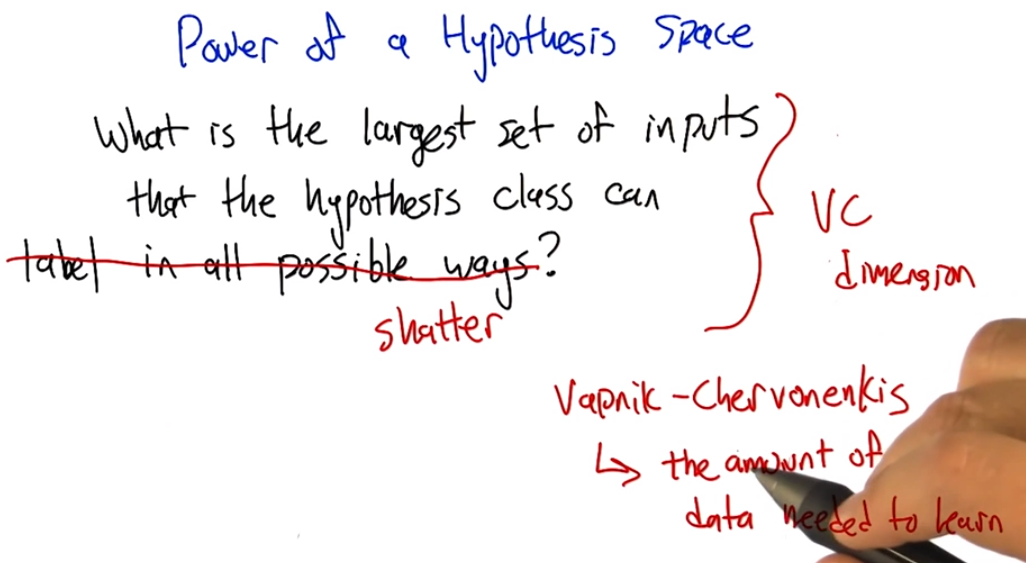 Power of a Hypothesis Space
What is the largest set of inputs
that the hypothesis class can
label in all possible ways?
shatter
VC
dimension
Vapnik-Chervonenkis
↳ the amount of
data needed to learn